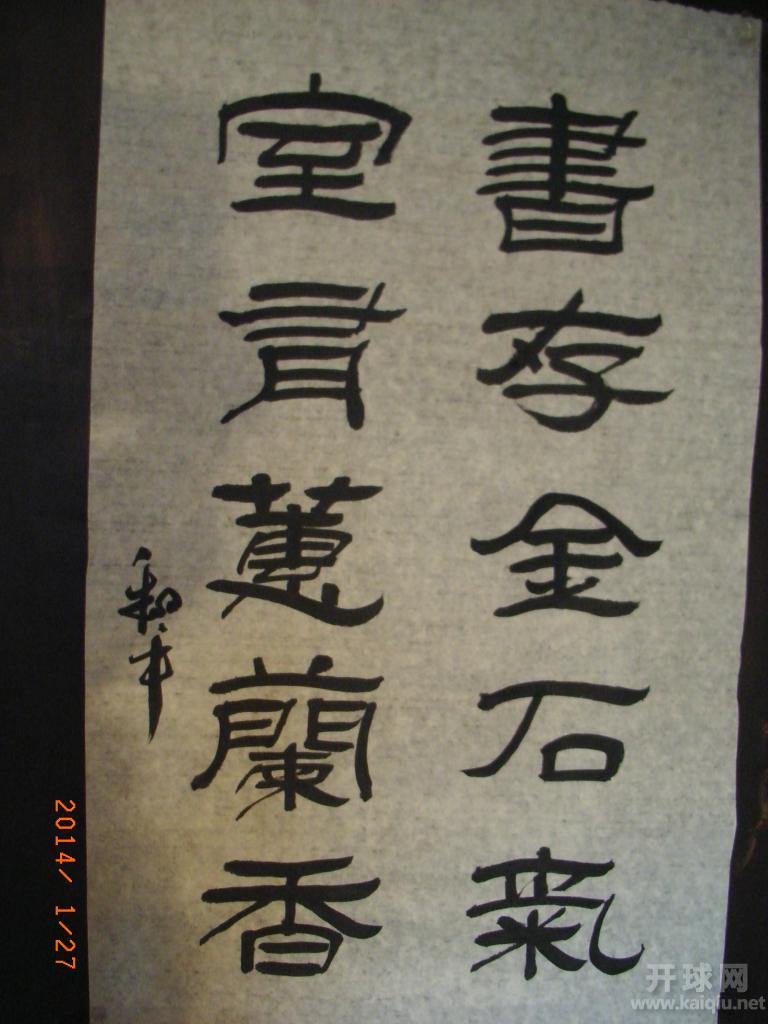 書存金石氣
室有蕙蘭香
2014/ 1/27
开球网
www.kaiqiu.net